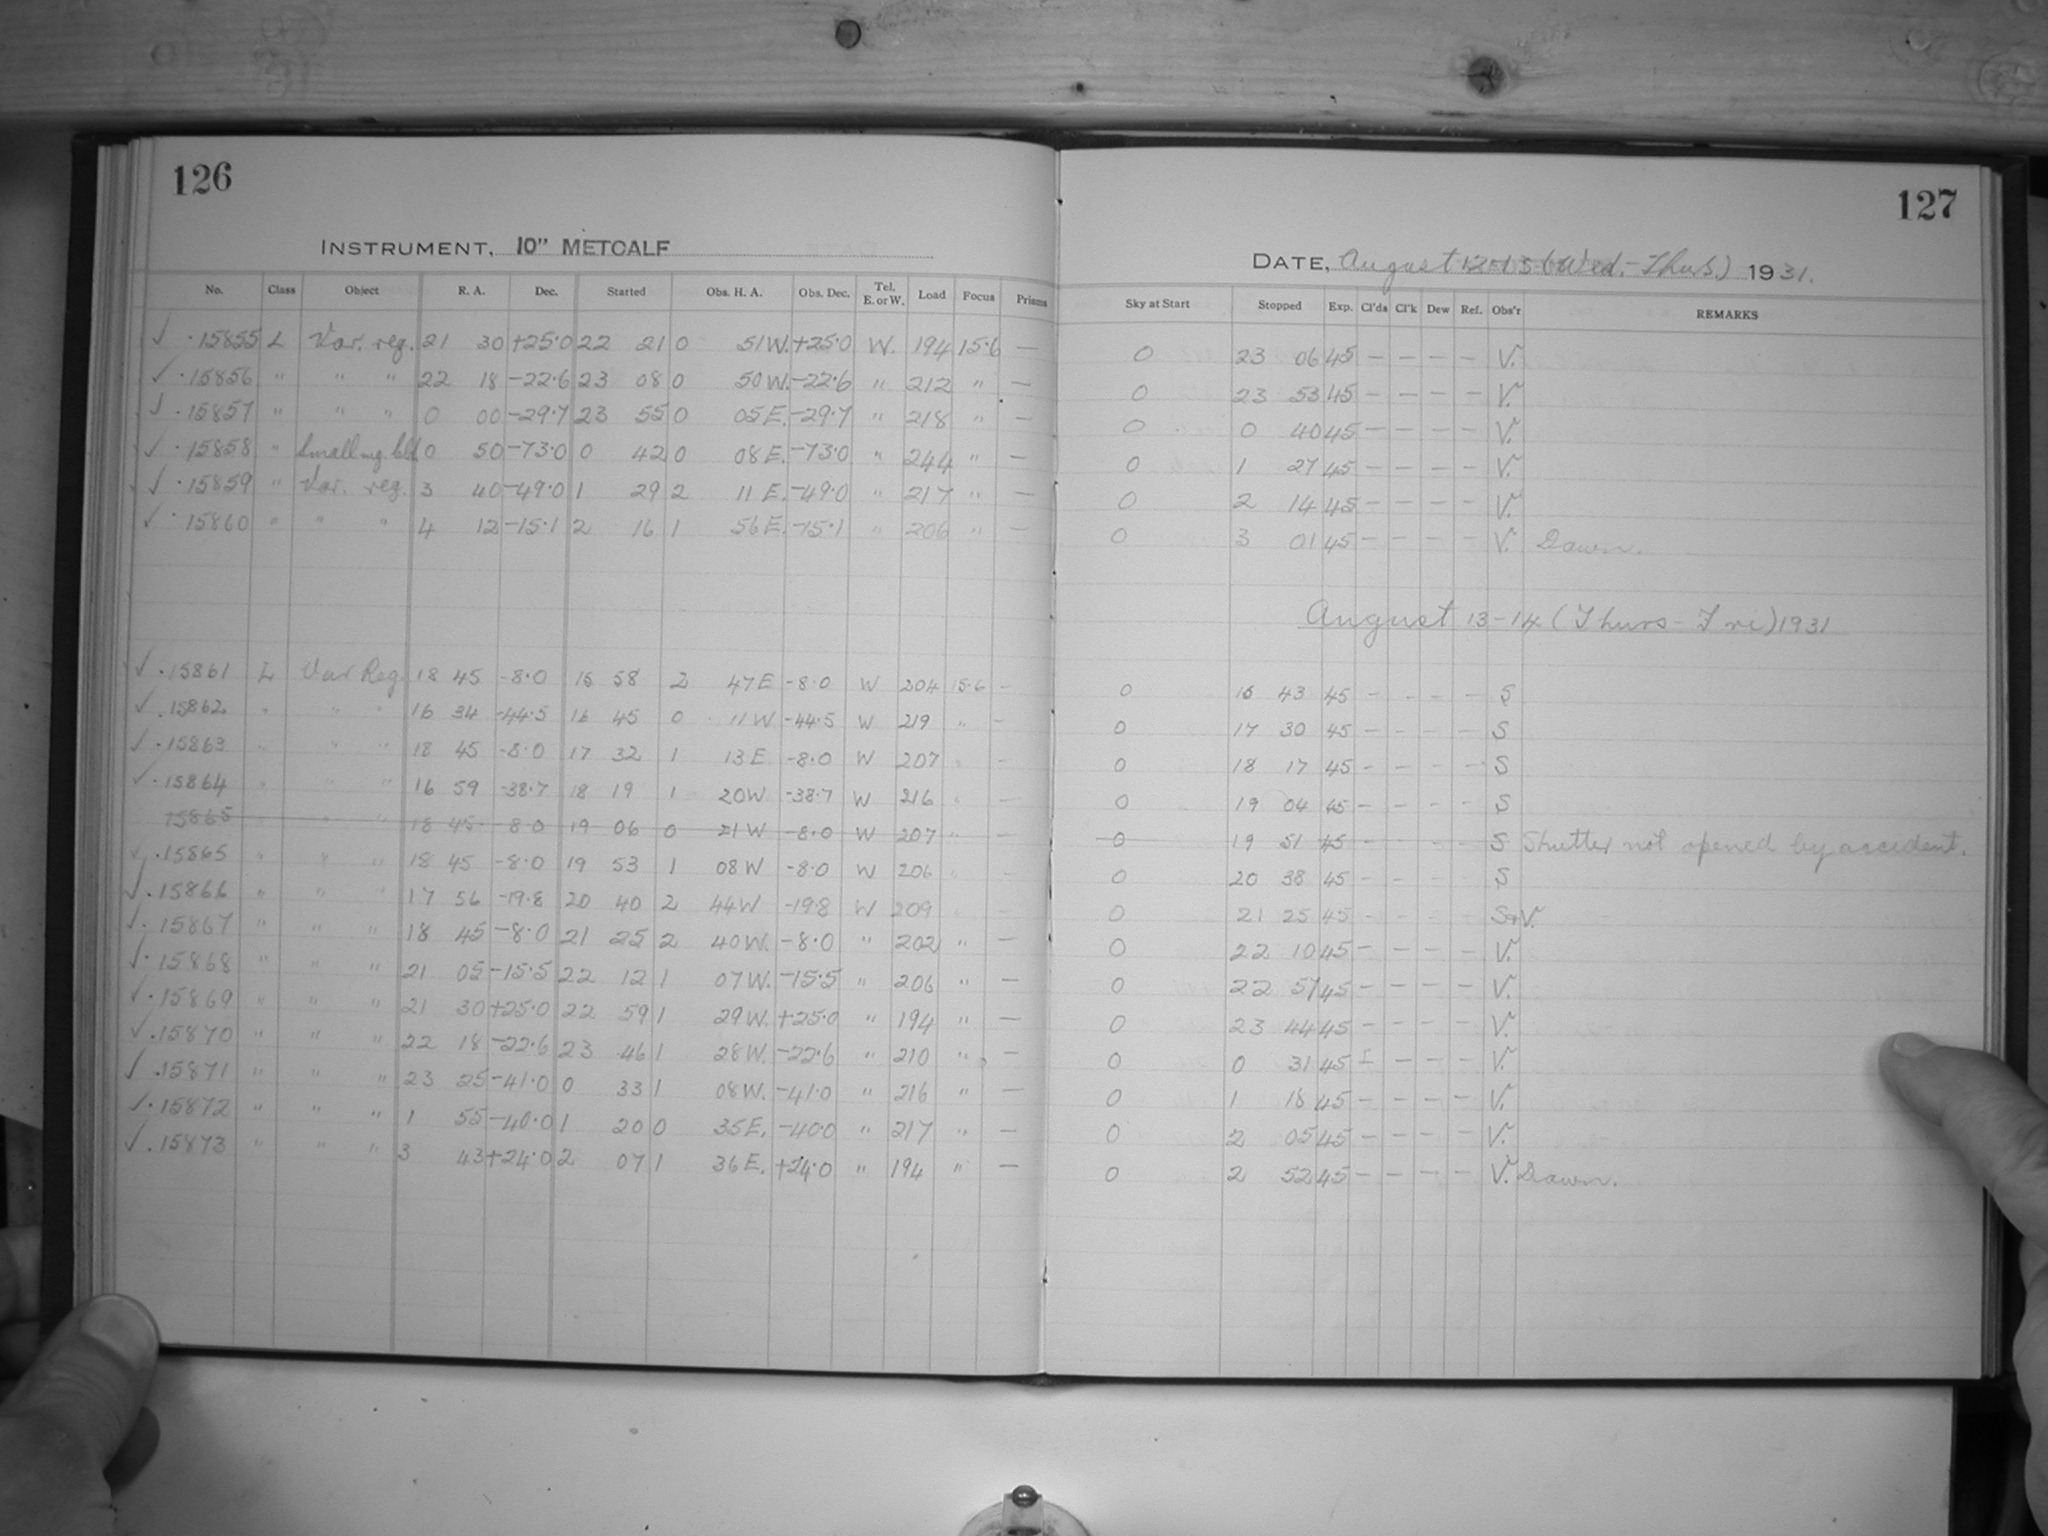 126
127
INSTRUMENT, 10" METCALF
DATE, August 12-13 (Wed.-Thurs.) 1931.
No. Class Object R. A. Dec. Started Obs. H. A. Obs. Dec. Tel. E. or W. Load Focus Prisms Sky at Start Stopped Exp. Cl'ds Cl'k Dew Ref. Obs'r REMARKS
✓ ·15855 L Var. reg. 21 30 +25·0 22 21 0 51 W. +25·0 W. 194 15·6 — 0 23 06 45 — — — — V.
✓ ·15856 " " " 22 18 -22·6 23 08 0 50 W. -22·6 " 212 " — 0 23 53 45 — — — — V.
✓ ·15857 " " " 0 00 -29·7 23 55 0 05 E. -29·7 " 218 " — 0 0 40 45 — — — — V.
✓ ·15858 " Small mg. cld. 0 50 -73·0 0 42 0 08 E. -73·0 " 244 " — 0 1 27 45 — — — — V.
✓ ·15859 " Var. reg. 3 40 -49·0 1 29 2 11 E. -49·0 " 217 " — 0 2 14 45 — — — — V.
✓ ·15860 " " " 4 12 -15·1 2 16 1 56 E. -15·1 " 206 " — 0 3 01 45 — — — — V. Dawn.
August 13-14 (Thurs-Fri) 1931
✓ ·15861 L Var Reg. 18 45 -8·0 15 58 2 47 E -8·0 W 204 15·6 — 0 16 43 45 - - - - S
✓ ·15862 " " " 16 34 -44·5 16 45 0 11 W -44·5 W 219 " — 0 17 30 45 - - - - S
✓ ·15863 " " " 18 45 -8·0 17 32 1 13 E -8·0 W 207 " — 0 18 17 45 - - - - S
✓ ·15864 " " " 16 59 -38·7 18 19 1 20 W -38·7 W 216 " — 0 19 04 45 - - - - S
15865 " " " 18 45 -8·0 19 06 0 21 W -8·0 W 207 " — 0 19 51 45 - - - - S Shutter not opened by accident.
✓ ·15865 " " " 18 45 -8·0 19 53 1 08 W -8·0 W 206 " — 0 20 38 45 - - - - S
✓ ·15866 " " " 17 56 -19·8 20 40 2 44 W -19·8 W 209 " — 0 21 25 45 - - - - S+V.
✓ ·15867 " " " 18 45 -8·0 21 25 2 40 W. -8·0 " 202 " — 0 22 10 45 — — — — V.
✓ ·15868 " " " 21 05 -15·5 22 12 1 07 W. -15·5 " 206 " — 0 22 57 45 — — — — V.
✓ ·15869 " " " 21 30 +25·0 22 59 1 29 W. +25·0 " 194 " — 0 23 44 45 — — — — V.
✓ ·15870 " " " 22 18 -22·6 23 46 1 28 W. -22·6 " 210 " — 0 0 31 45 — — — — V.
✓ ·15871 " " " 23 25 -41·0 0 33 1 08 W. -41·0 " 216 " — 0 1 18 45 — — — — V.
✓ ·15872 " " " 1 55 -40·0 1 20 0 35 E. -40·0 " 217 " — 0 2 05 45 — — — — V.
✓ ·15873 " " " 3 43 +24·0 2 07 1 36 E. +24·0 " 194 " — 0 2 52 45 — — — — V. Dawn.